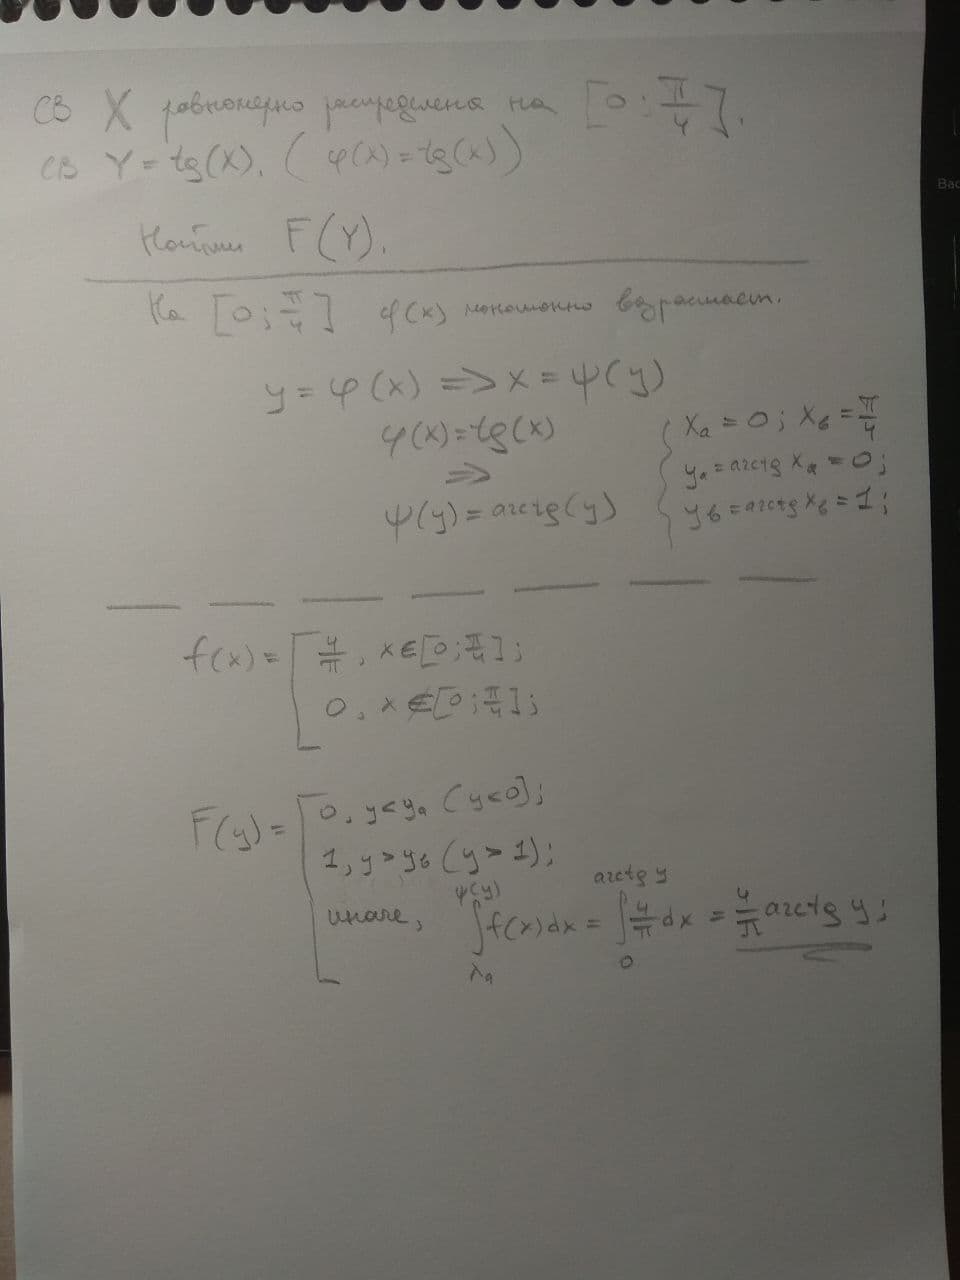 СВ X равномерно распределена на [0; π/4].
СВ Y = tg(X). ( φ(x) = tg(x) )
Найти F(Y).
На [0; π/4] φ(x) монотонно возрастает.
y = φ(x) => x = ψ(y)
φ(x) = tg(x)
=>
ψ(y) = arctg(y)
{ Xa = 0; Xб = π/4
ya = arctg Xa = 0;
yб = arctg Xб = 1;
f(x) = [ 4/π, x∈[0; π/4];
0, x∉[0; π/4];
F(y) = [ 0, y < ya (y<0);
1, y > yб (y > 1);
иначе, ∫_{xa}^{ψ(y)} f(x)dx = ∫_0^{arctg y} 4/π dx = 4/π arctg y;